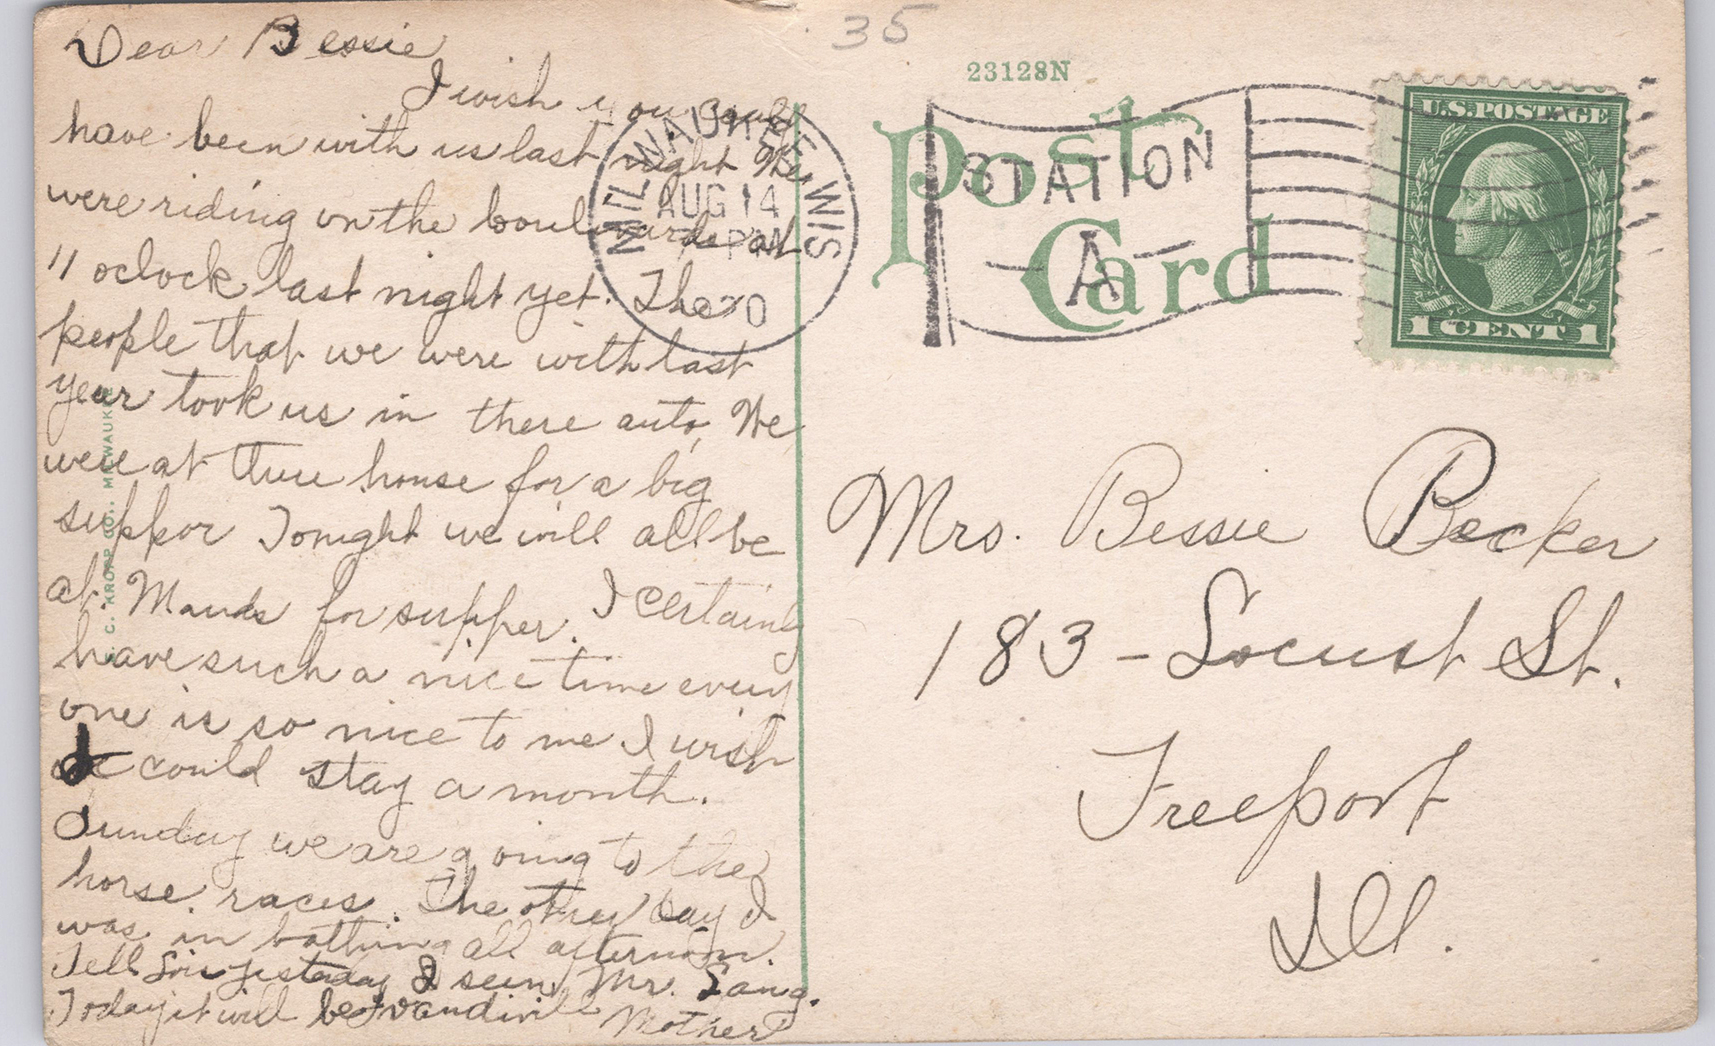 Dear Bessie
I wish you could
have been with us last night We
were riding on the boulevards at
11 oclock last night yet. The
people that we were with last
year took us in there auto, We
were at there house for a big
suppor Tonight we will all be
at Mauds for supper. I certainly
have such a nice time every
one is so nice to me I wish
I could stay a month.
Sunday we are going to the
horse races. The other day I
was in bathing all afternoon.
Tell yesterday I seen Mr. Lang.
Today it will be vandivill
Mother
E. C. KROPP CO., MILWAUKEE
35
23128N
Post
Card
MILWAUKEE, WIS
AUG 14
7 PM
STATION
A
U.S. POSTAGE
1 CENT 1
Mrs. Bessie Becker
183 - Locust St.
Freeport
Ill.